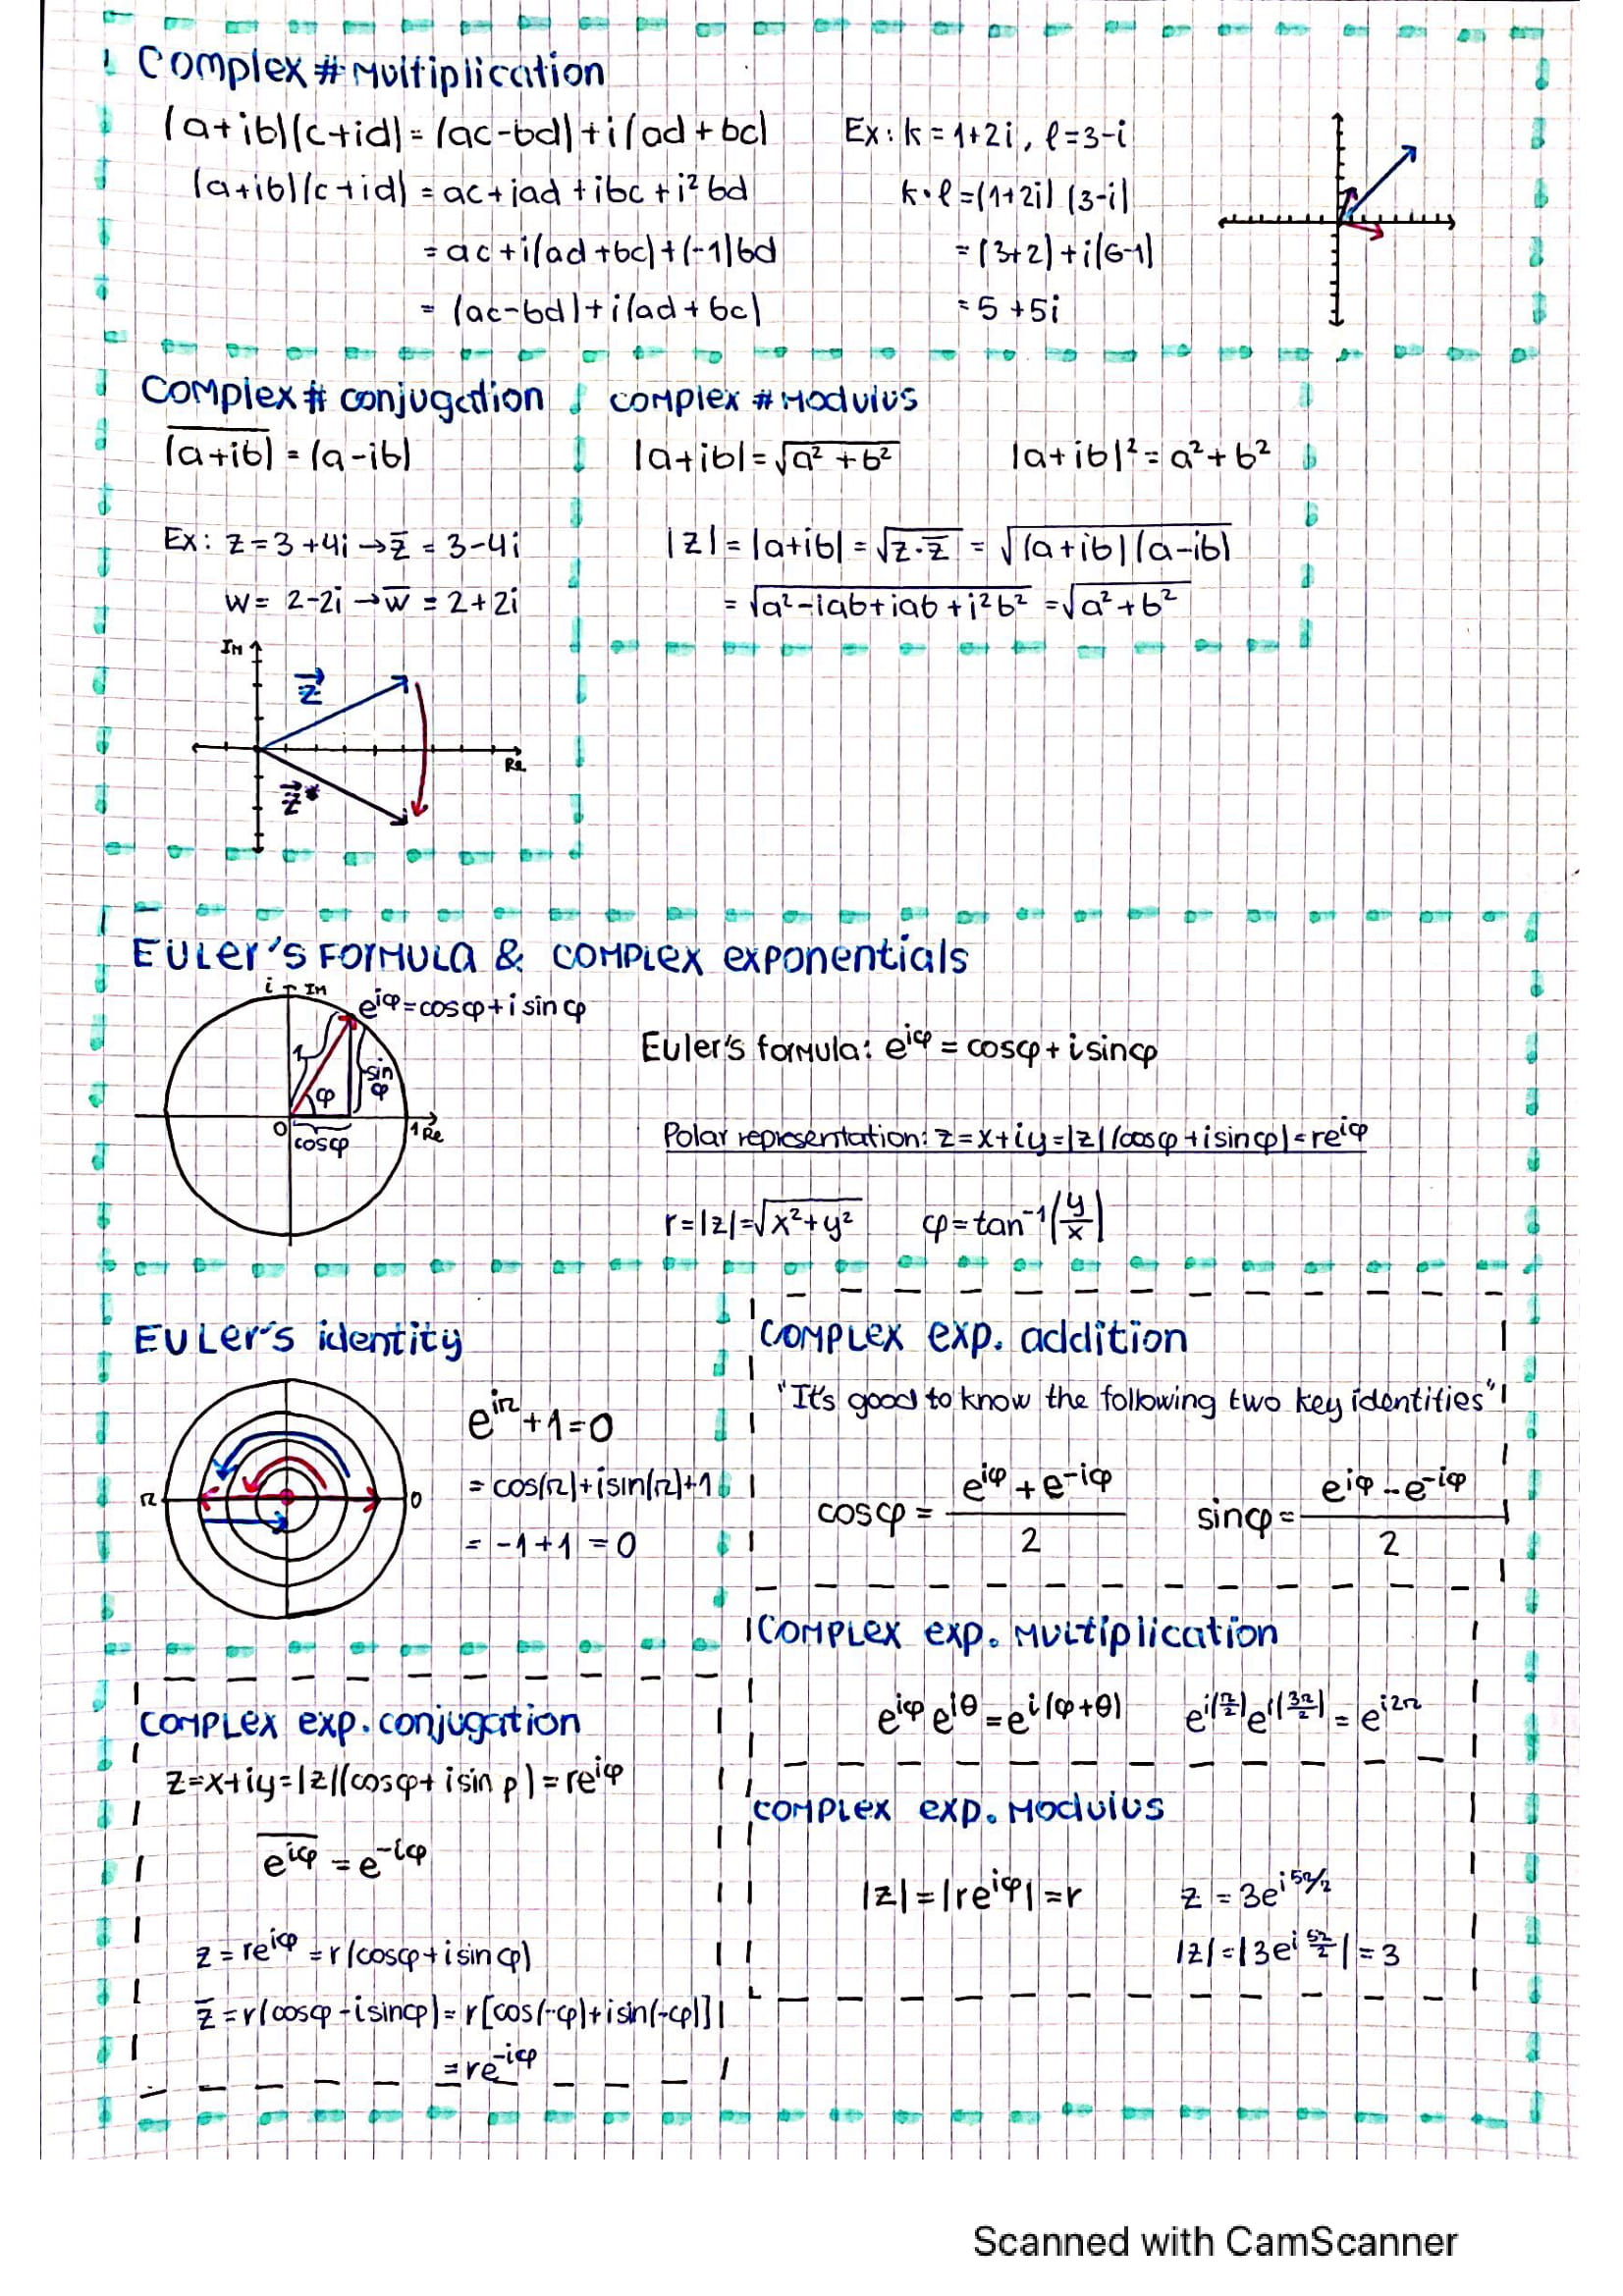 Complex # Multiplication
(a+ib)(c+id) = (ac-bd)+i(ad+bc)
(a+ib)(c+id) = ac+iad+ibc+i²bd
= ac+i(ad+bc)+(-1)bd
= (ac-bd)+i(ad+bc)
Ex: k=1+2i, ℓ=3-i
k·ℓ=(1+2i)(3-i)
=(3+2)+i(6-1)
=5+5i
Complex # conjugation
(a+ib)‾ = (a-ib)
Ex: z=3+4i → z̅ = 3-4i
w= 2-2i → w̅ = 2+2i
Im
z⃗
z⃗*
Re
complex # Modulus
|a+ib|=√(a²+b²) |a+ib|²=a²+b²
|z|=|a+ib|=√(z·z̅) = √((a+ib)(a-ib))
=√(a²-iab+iab+i²b²) =√(a²+b²)
Euler's Formula & complex exponentials
i Im
e^{iφ}=cosφ+i sinφ
1
sin φ
φ
0 1 Re
cosφ
Euler's formula: e^{iφ} = cosφ+isinφ
Polar representation: z=x+iy=|z|(cosφ+isinφ)=re^{iφ}
r=|z|=√(x²+y²) φ=tan⁻¹(y/x)
Euler's identity
π 0
e^{iπ}+1=0
= cos(π)+isin(π)+1
= -1+1 =0
Complex exp. addition
"It's good to know the following two key identities"
cosφ = (e^{iφ}+e^{-iφ})/2 sinφ = (e^{iφ}-e^{-iφ})/2
Complex exp. Multiplication
e^{iφ}e^{iθ}=e^{i(φ+θ)} e^{i(π/2)}e^{i(3π/2)} = e^{i2π}
complex exp. conjugation
z=x+iy=|z|(cosφ+isin p)=re^{iφ}
e^{iφ}‾ = e^{-iφ}
z=re^{iφ}=r(cosφ+isinφ)
z̅=r(cosφ-isinφ)=r[cos(-φ)+isin(-φ)]
=re^{-iφ}
complex exp. Modulus
|z|=|re^{iφ}|=r z=3e^{i5π/2}
|z|=|3e^{i5π/2}|=3
Scanned with CamScanner